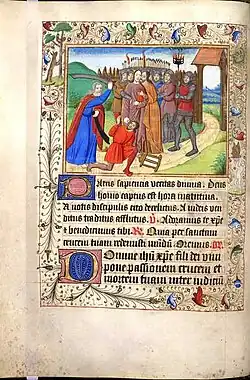 Patris sapiencia veritas divina. Deus
homo captus est hora matutina
A notis discipulis cito derelictus A iudeis ven
ditus traditus afflictus. V. Adoramus te xpe
et benedicimus tibi. R. Quia per sanctam
crucem tuam redemisti mūdū. Oremus.
Domine ihū xpe fili dei vivi
pone passionem crucem et
mortem tuam inter iudiciū